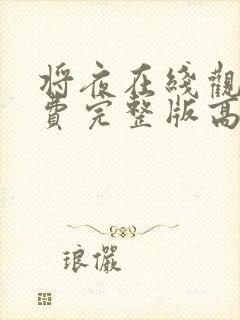 将夜在线觀
費完整版高
琅儼